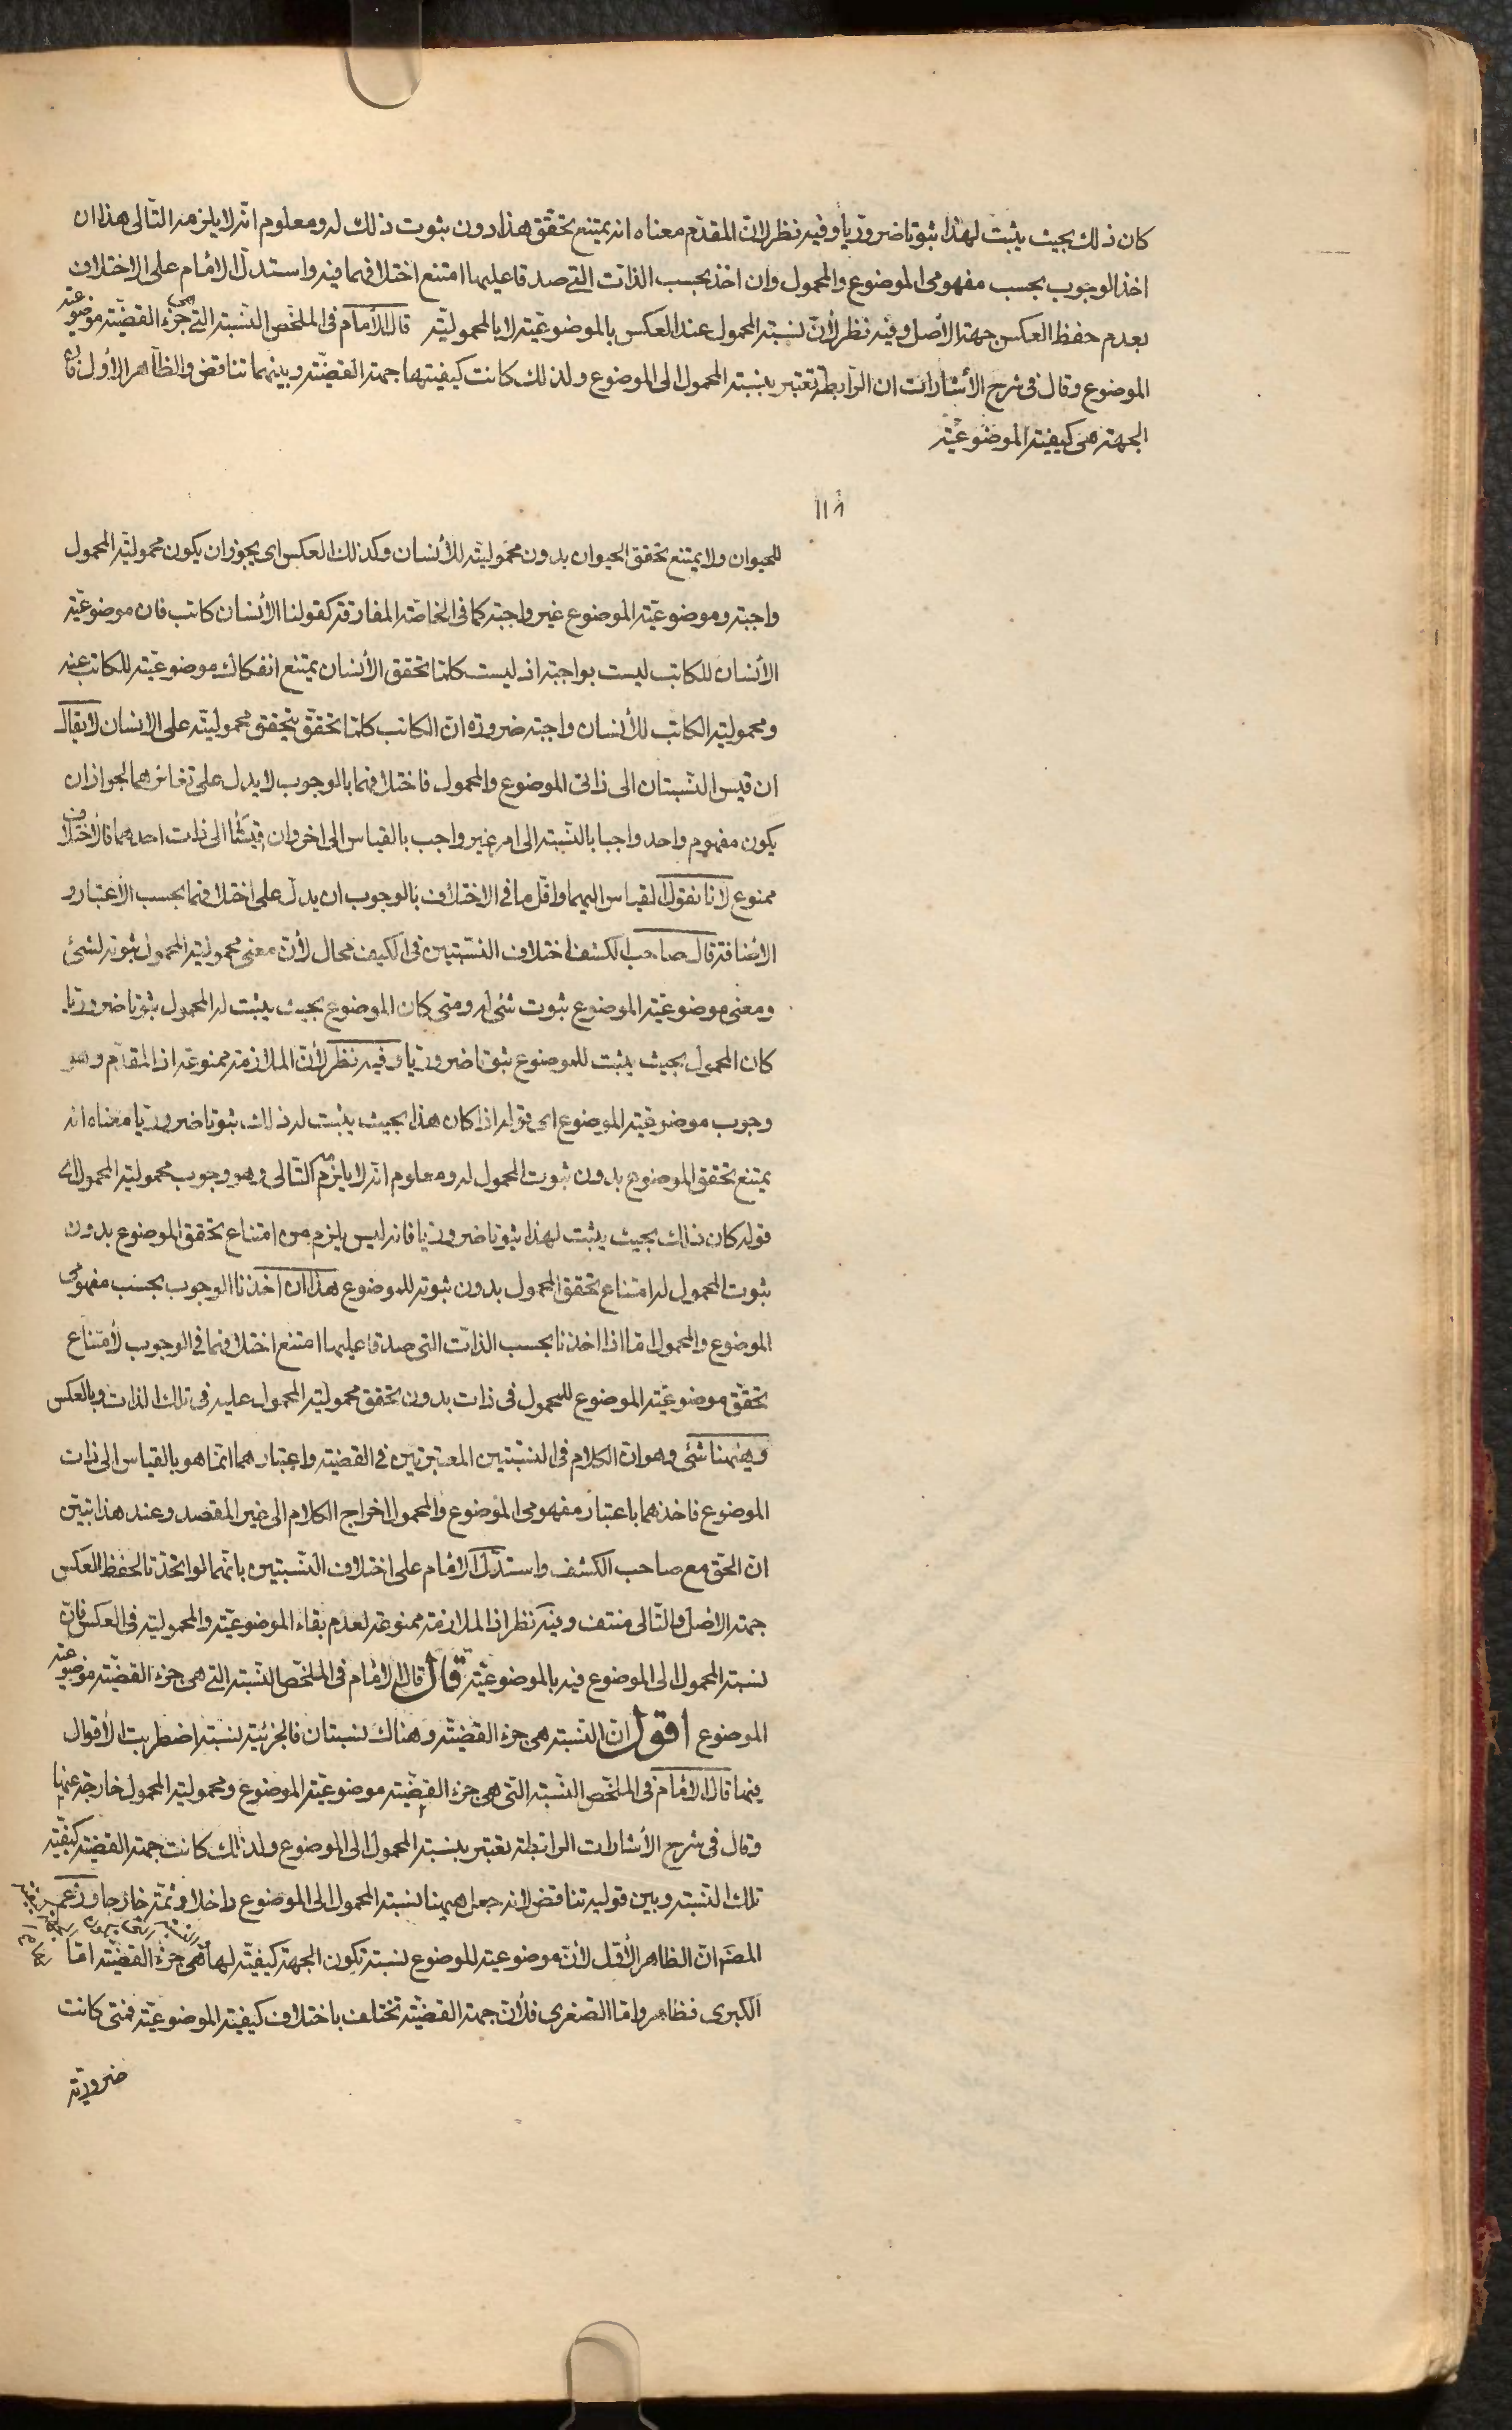 كان ذلك بحيث يثبت لهذا ثبوتا ضروريا وفيه نظر لان المقدم معناه انه يمتنع تحقق هذا دون ثبوت ذلك له ومعلوم انه لا يلزمه التالى هذا ان
اخذ الوجوب بحسب مفهومى الموضوع والمحمول وان اخذ بحسب الذات التى صدقا عليها امتنع اختلافهما فيه واستدل الامام على الاختلاف
بعدم حفظ العكس جهة الأصل وفيه نظر لأن نسبة المحمول عند العكس بالموضوعية لا بالمحمولية قال الامام فى الملخص النسبة التى هى جزء القضية موضوعية
الموضوع وقال فى شرح الأشارات ان الرابطة تعتبر بنسبة المحمول الى الموضوع ولذلك كانت كيفيتها جهة القضية وبينهما تناقض والظاهر الأول فان
الجهة هى كيفية الموضوعية
للحيوان ولا يمتنع تحقق الحيوان بدون محموليته للأنسان وكذلك العكس اى يجوز ان يكون محمولية المحمول
واجبة وموضوعية الموضوع غير واجبة كما فى الخاصة المفارقة كقولنا الأنسان كاتب فان موضوعية
الأنسان للكاتب ليست بواجبة اذ ليست كلما تحقق الأنسان يمتنع انفكاك موضوعيته للكاتب عنه
ومحمولية الكاتب للأنسان واجبة ضرورة ان الكاتب كلما تحقق يتحقق محموليته على الانسان لا يقال
ان قيس النسبتان الى ذاتى الموضوع والمحمول فاختلافهما بالوجوب لا يدل على تغايرهما لجواز ان
يكون مفهوم واحد واجبا بالنسبة الى امر غير واجب بالقياس الى اخر وان قيستا الى ذات احدهما فالأختلاف
ممنوع لانا نقول القياس اليهما واقل ما فى الاختلاف بالوجوب ان يدل على اختلافهما بحسب الأعتبار و
الاضافة قال صاحب الكشف اختلاف النسبتين فى الكيف محال لأن معنى محمولية المحمول ثبوته لشئ
ومعنى موضوعية الموضوع ثبوت شئ له ومتى كان الموضوع بحيث يثبت له المحمول ثبوتا ضروريا
كان المحمول بحيث يثبت للموضوع ثبوتا ضروريا وفيه نظر لأن الملازمة ممنوعة اذ المقدم وهو
وجوب موضوعية الموضوع اى قوله اذا كان هذا بحيث يثبت له ذلك ثبوتا ضروريا معناه انه
يمتنع تحقق الموضوع بدون ثبوت المحمول له ومعلوم انه لا يلزم التالى وهو وجوب محمولية المحمول اى
قوله كان ذلك بحيث يثبت لهذا ثبوتا ضروريا فانه ليس يلزم من امتناع تحقق الموضوع بدون
ثبوت المحمول له امتناع تحقق المحمول بدون ثبوته للموضوع هذا ان اخذنا الوجوب بحسب مفهومى
الموضوع والمحمول اما اذا اخذنا بحسب الذات التى صدقا عليها امتنع اختلافهما فى الوجوب لأمتناع
تحقق موضوعية الموضوع للمحمول فى ذات بدون تحقق محمولية المحمول عليه فى تلك الذات وبالعكس
وههنا شئ وهو ان الكلام فى النسبتين المعتبرتين فى القضية واعتبارهما انما هو بالقياس الى ذات
الموضوع فاخذهما باعتبار مفهومى الموضوع والمحمول اخراج الكلام الى غير المقصد وعند هذا تبين
ان الحق مع صاحب الكشف واستدل الامام على اختلاف النسبتين بانهما لو اتحدتا لحفظ العكس
جهة الاصل والتالى منتف وفيه نظر اذ الملازمة ممنوعة لعدم بقاء الموضوعية والمحمولية فى العكس فان
نسبة المحمول الى الموضوع فيه بالموضوعية قال قال الامام فى الملخص النسبة التى هى جزء القضية موضوعية
الموضوع اقول ان النسبة هى جزء القضية وهناك نسبتان فالجزئية نسبة اضطربت الأقوال
فيها قال الامام فى الملخص النسبة التى هى جزء القضية موضوعية الموضوع ومحمولية المحمول خارجة عنها
وقال فى شرح الأشارات الرابطة تعتبر بنسبة المحمول الى الموضوع ولذلك كانت جهة القضية كيفية
تلك النسبة وبين قوليه تناقض لانه جعل ههنا نسبة المحمول الى الموضوع داخلا وثمة خارجا وزعم
المصنف ان الظاهر الأول لأن موضوعية الموضوع نسبة تكون الجهة كيفية لها هى جزء القضية اما
الكبرى فظاهر واما الصغرى فلأن جهة القضية تختلف باختلاف كيفية الموضوعية فمتى كانت
ضرورية